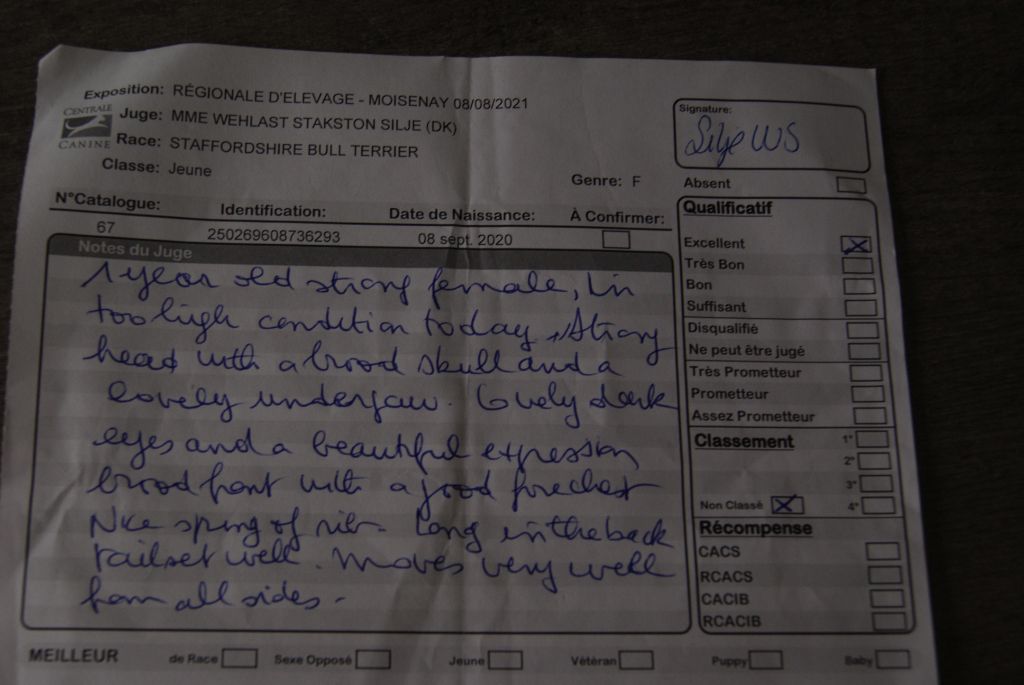 Exposition: RÉGIONALE D'ELEVAGE - MOISENAY 08/08/2021
CENTRALE CANINE
Juge: MME WEHLAST STAKSTON SILJE (DK)
Race: STAFFORDSHIRE BULL TERRIER
Classe: Jeune
Genre: F
Signature:
Silje WS
Absent
N°Catalogue: Identification: Date de Naissance: À Confirmer:
67 250269608736293 08 sept. 2020
Notes du Juge
1 year old strong female, in
too high condition today, strong
head with a brood skull and a
lovely underjaw. Lovely dark
eyes and a beautiful expression
brood front with a good forechest
Nice spring of rib. Long in the back
tailset well. Moves very well
from all sides.
Qualificatif
Excellent X
Très Bon
Bon
Suffisant
Disqualifié
Ne peut être jugé
Très Prometteur
Prometteur
Assez Prometteur
Classement 1°
2°
3°
Non Classé X 4°
Récompense
CACS
RCACS
CACIB
RCACIB
MEILLEUR de Race Sexe Opposé Jeune Vétéran Puppy Baby